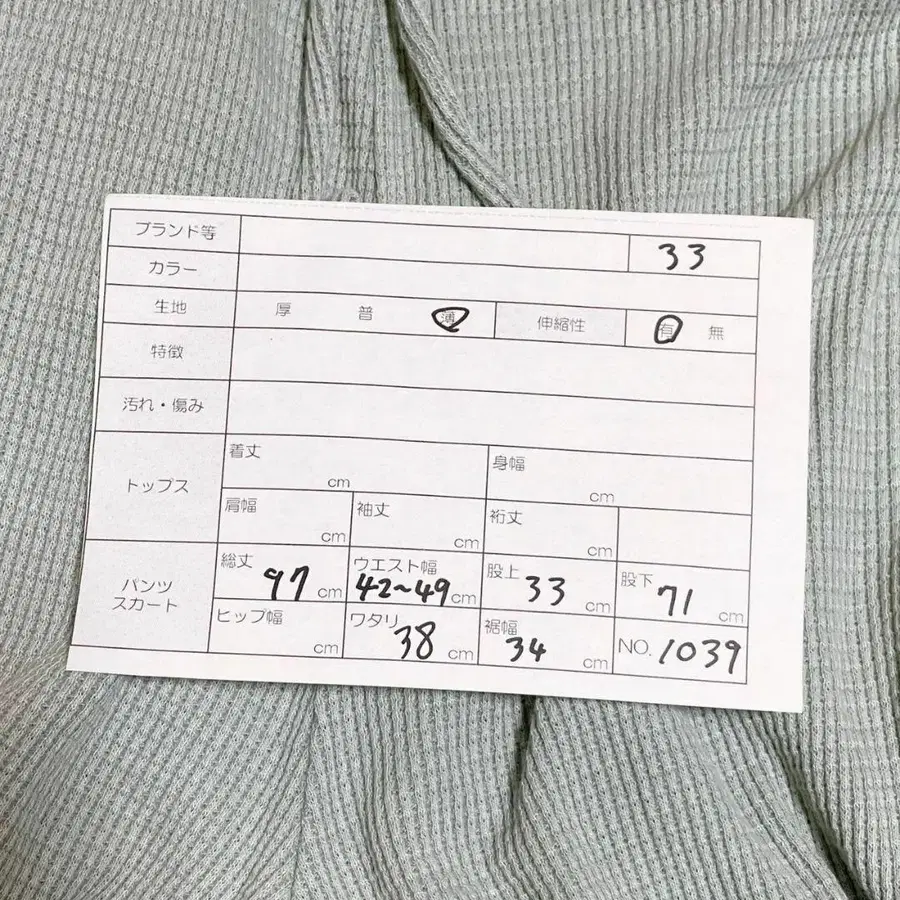 ブランド等 33
カラー
生地 厚 普 薄 伸縮性 有 無
特徴
汚れ・傷み
トップス 着丈 cm 身幅 cm
肩幅 cm 袖丈 cm 裄丈 cm
パンツ スカート 総丈 97 cm ウエスト幅 42~49 cm 股上 33 cm 股下 71 cm
ヒップ幅 cm ワタリ 38 cm 裾幅 34 cm NO. 1039